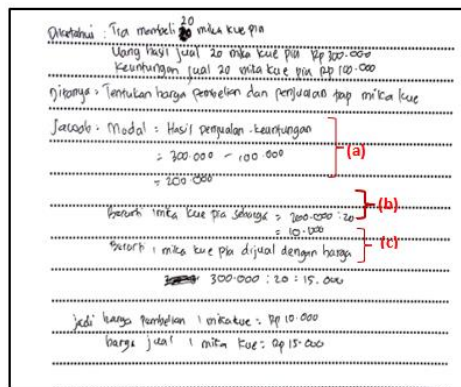 Diketahui : Tia membeli 20 mika kue pia
Uang hasil jual 20 mika kue pia Rp 300.000
Keuntungan jual 20 mika kue pia Rp 100.000
Ditanya : Tentukan harga pembelian dan penjualan tiap mika kue
Jawab : Modal = Hasil penjualan - keuntungan
= 300.000 - 100.000
(a)
= 200.000
Berarti 1 mika kue pia seharga = 200.000 : 20
(b)
= 10.000
(c)
Berarti 1 mika kue pia dijual dengan harga
300.000 : 20 = 15.000
jadi harga pembelian 1 mika kue = Rp 10.000
harga jual 1 mika kue = Rp 15.000